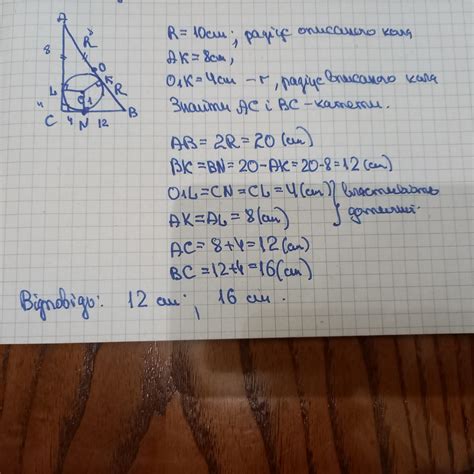 R = 10см; радіус описаного кола
AK = 8см,
O₁K = 4см – r, радіус вписаного кола
Знайти AC і BC – катети.
AB = 2R = 20 (см)
BK = BN = 20 – AK = 20 – 8 = 12 (см)
O₁L = CN = CL = 4 (см)
AK = AL = 8 (см)
властивість
дотичної
AC = 8 + 4 = 12 (см)
BC = 12 + 4 = 16 (см)
Відповідь: 12 см; 16 см.
A
8
R
O
K
L
O1
R
4
C 4 N 12 B